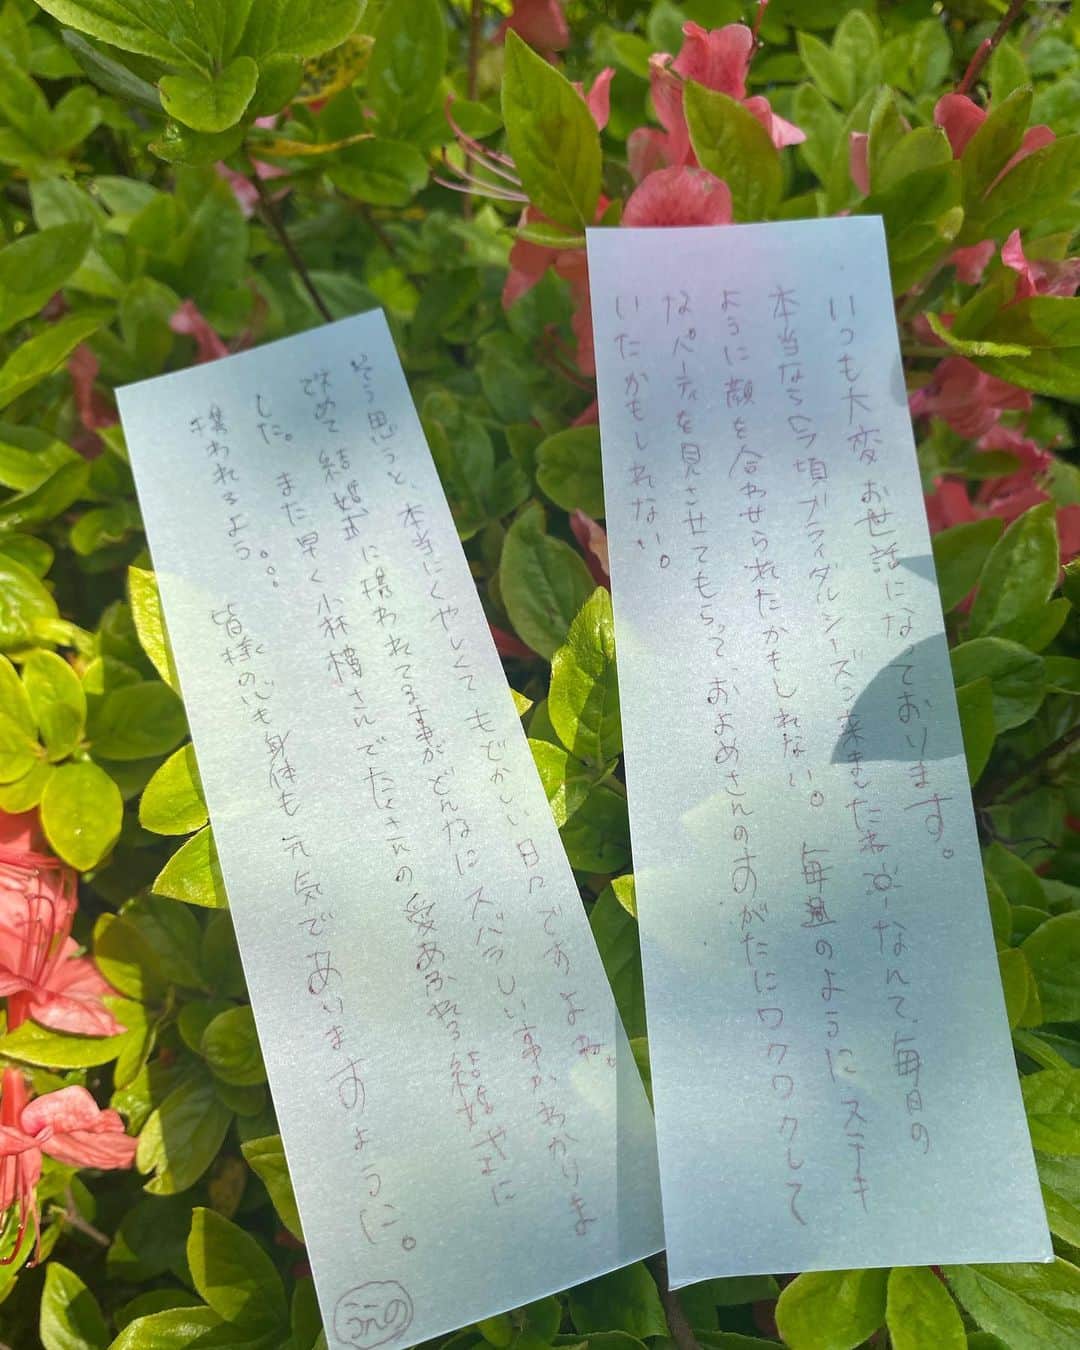 いつも大変お世話になっております。
本当なら今頃ブライダルシーズン来ましたねぇーなんて、毎日の
ように顔を合わせられたかもしれない。毎週のようにステキ
なパーティを見させてもらって、およめさんのすがたにワクワクして
いたかもしれない。
そう思うと、本当にくやしくてもどかしい日々ですよね。
改めて結婚式に携われてる事がどんなにスバラしい事かわかりま
した。また早く小林樓さんでたくさんの愛あふれる結婚やよに
携われるよう。。。
皆様の心も身体も元気でありますように。